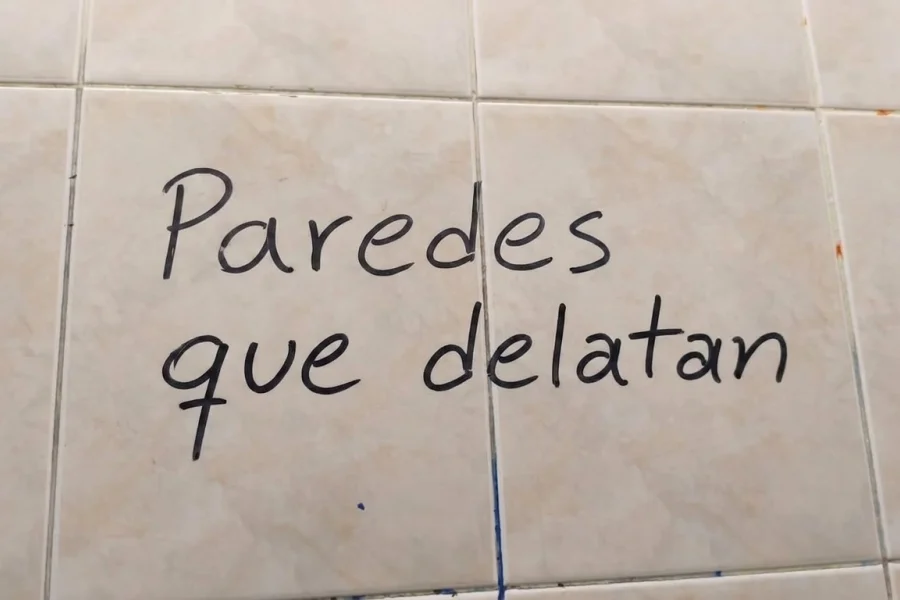 Paredes
que delatan